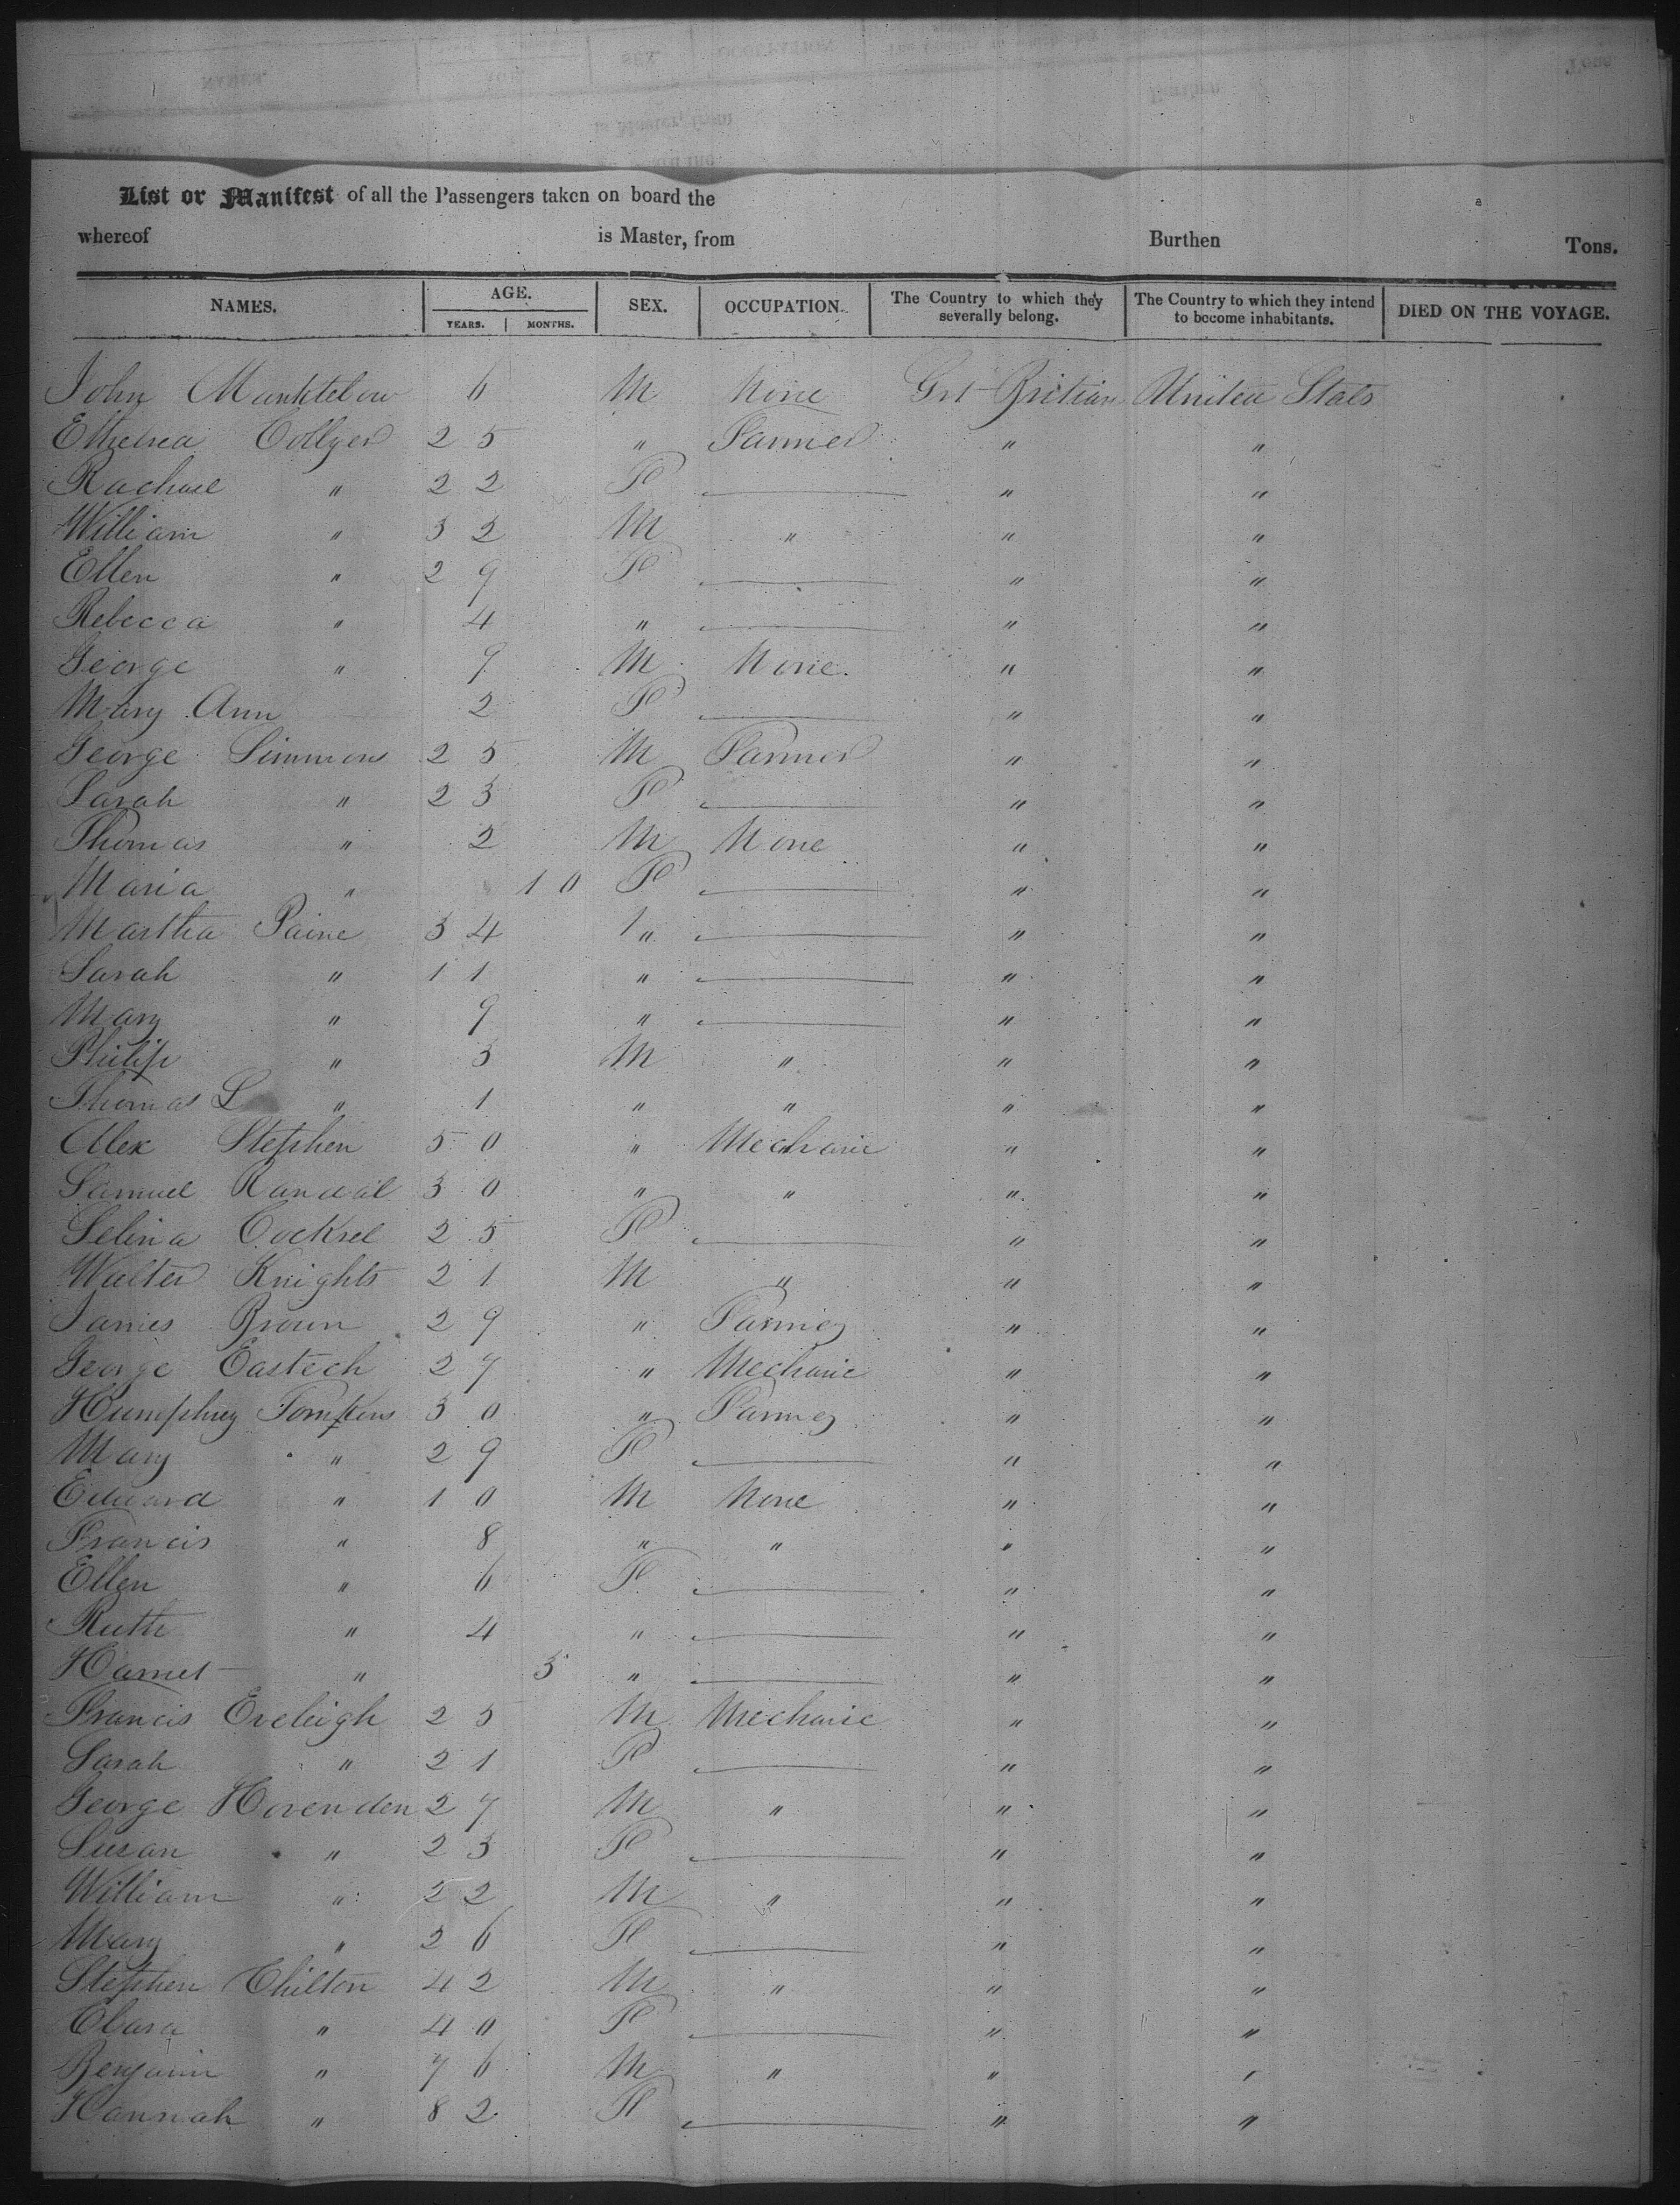 List or Manifest of all the Passengers taken on board the
whereof is Master, from Burthen Tons.
NAMES. AGE. YEARS. MONTHS. SEX. OCCUPATION. The Country to which they severally belong. The Country to which they intend to become inhabitants. DIED ON THE VOYAGE.
John Manktelow 6 M None Grt Britian United Stats
Collyer 25 " Farmer " "
Rachael " 22 F — " "
William " 32 M " " "
Ellen " 29 F — " "
Rebecca " 4 " — " "
George " 9 M None. " "
Mary Ann 2 F — " "
George Simmons 25 M Farmer " "
Sarah " 23 F — " "
Thomas " 2 M None " "
Maria " 10 F — " "
Martha Paine 34 " — " "
Sarah " 11 " — " "
Mary " 9 " — " "
Philip " 3 M " " "
Thomas L " 1 " " " "
Alex Stephen 50 " Mechanic " "
Samuel Randal 30 " " " "
Selina Cockrel 25 F — " "
Walter Knights 21 M " " "
James Brown 29 " Farmer " "
George Eastech 27 " Mechanic " "
Humphrey Tompkins 30 " Farmer " "
Mary " 29 F — " "
Edward " 10 M None " "
Francis " 8 " " " "
Ellen " 6 F — " "
Ruth " 4 " — " "
Harriet " 3 " — " "
Francis Eveleigh 25 M Mechanic " "
Sarah " 21 F — " "
George Hovenden 27 M " " "
Susan " 23 F — " "
William " 22 M " " "
Mary " 26 F — " "
Stephen Chilton 42 M " " "
Clara " 40 F — " "
Benjamin " 76 M " " "
Hannah " 82 F — " "